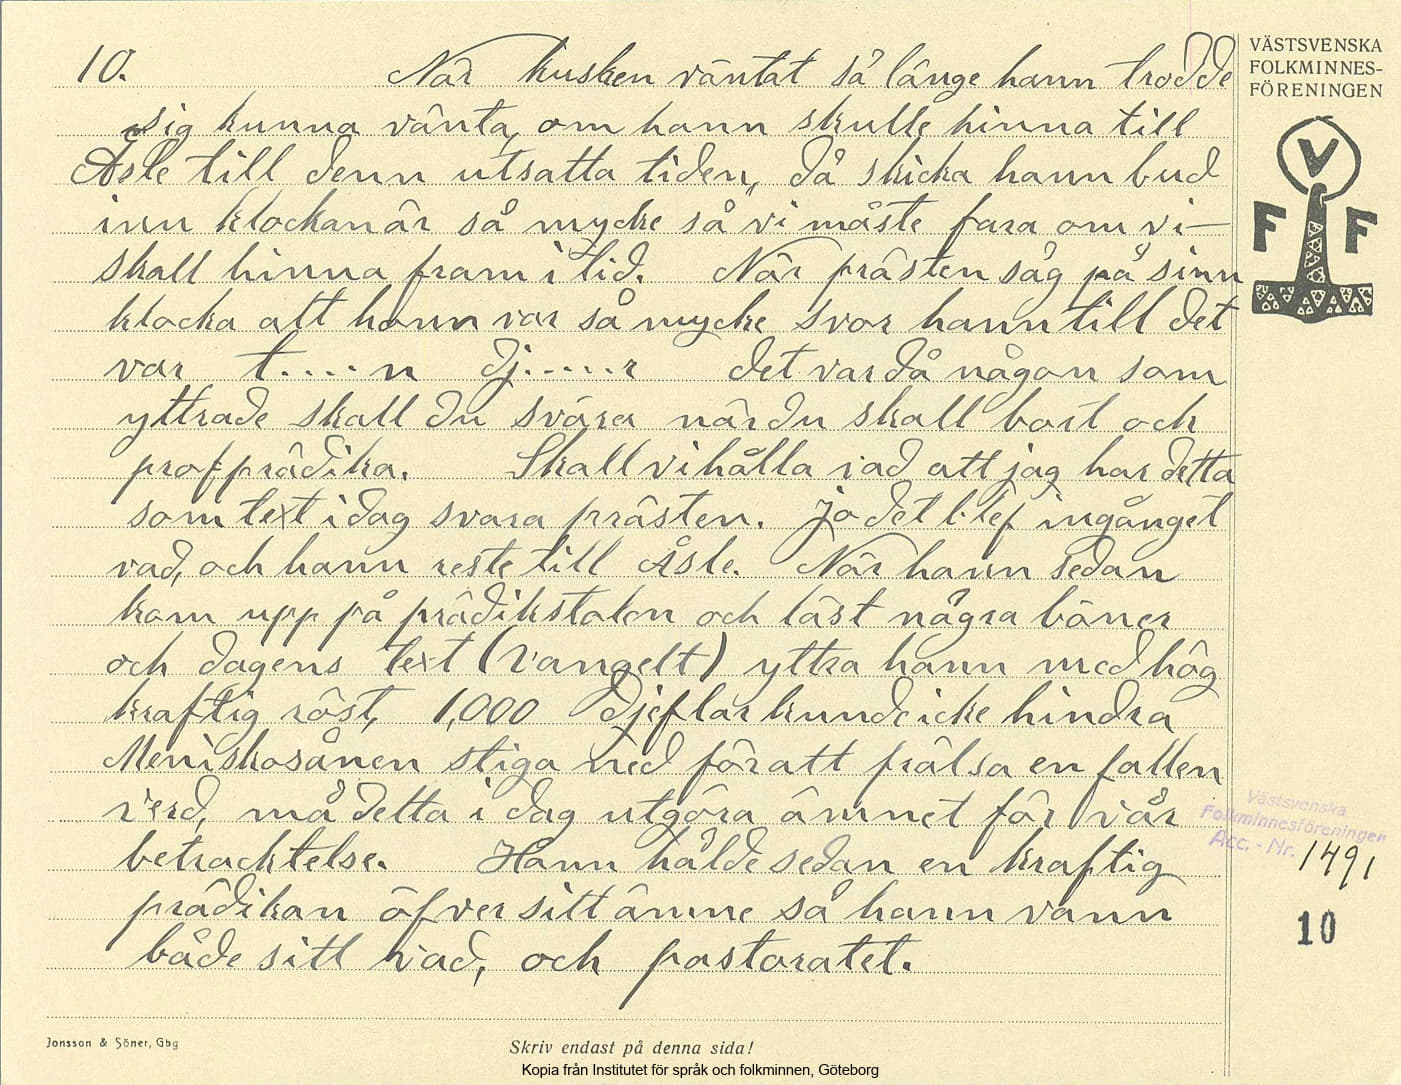 VÄSTSVENSKA
FOLKMINNES-
FÖRENINGEN
V
F F
10. När kusken väntat så länge hann trodde
sig kunna vänta, om hann skulle hinna till
Åsle till denn utsatta tiden, då skicka hann bud
inn klockan är så mycke så vi måste fara om vi –
skall hinna fram i tid. När prästen såg på sinn
klocka att hann var så mycke svor hann till det
var t.....n dj.....r det var då någon som
yttrade skall du svära när du skall bort och
profprädika. Skall vi hålla vad att jag har detta
som text idag svara prästen. jo det blef ingånget
vad, och hann reste till Åsle. När hann sedan
kom upp på prädikstolen och läst några böner
och dagens text (vangelt) yttra hann med hög
kraftig röst, 1,000 djeflar kunde icke hindra
Meniskosånen stiga ned för att frälsa en fallen
verd, må detta i dag utgöra ämnet för vår
betracktelse. Hann hålde sedan en kraftig
prädikan öfver sitt ämne så hann vann
både sitt vad, och pastoratet.
Västsvenska
Folkminnesföreningen
Acc. - Nr. 1491
10
Jonsson & Söner, Gbg
Skriv endast på denna sida!
Kopia från Institutet för språk och folkminnen, Göteborg